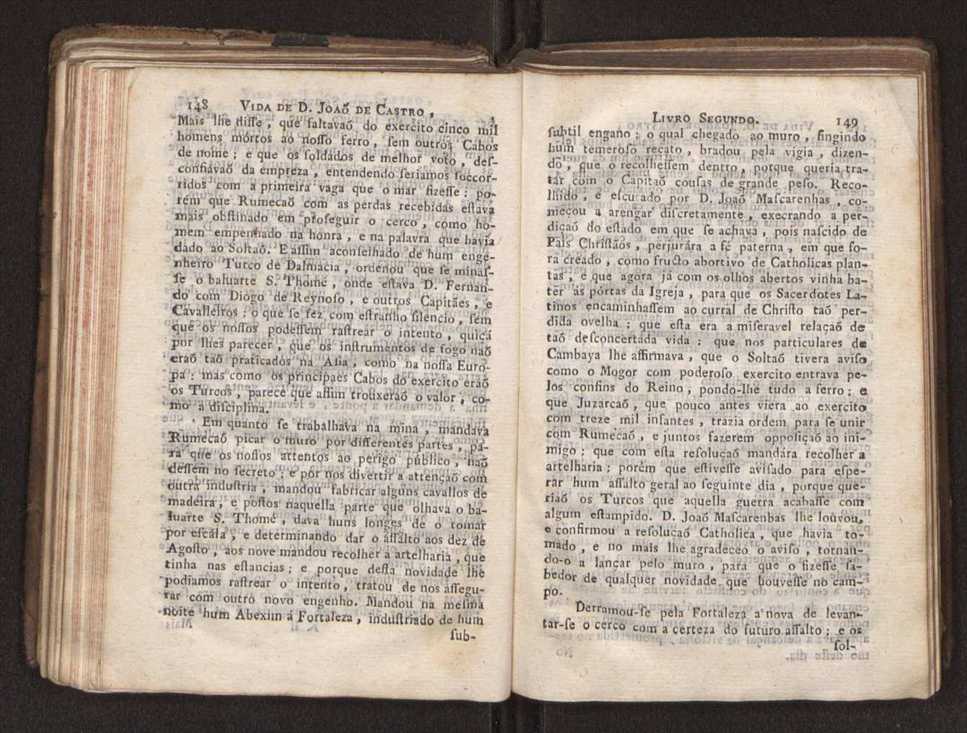 148 VIDA DE D. JOAÕ DE CASTRO,
Mais lhe diſſe, que faltavaõ do exercito cinco mil
homens mórtos ao noſſo ferro, ſem outros Cabos
de nome; e que os ſoldados de melhor voto, deſ-
confiavaõ da empreza, entendendo ſeriamos ſoccor-
ridos com a primeira vaga que o mar fizeſſe: po-
rém que Rumecaõ com as perdas recebidas eſtava
mais obſtinado em proſeguir o cerco, como ho-
mem empenhado na honra, e na palavra que havia
dado ao Soltaõ. E aſſim aconſelhado de hum enge-
nheiro Turco de Dalmacia, ordenou que ſe minaſ-
ſe o baluarte S. Thomé, onde eſtava D. Fernan-
do com Diogo de Reynoſo, e outros Capitães, e
Cavalleiros: o que ſe fez com eſtranho ſilencio, ſem
que os noſſos podeſſem raſtrear o intento, quiçá
por lhes parecer, que os inſtrumentos de fogo naõ
eraõ taõ praticados na Aſia, como na noſſa Euro-
pa: mas como os principaes Cabos do exercito eraõ
os Turcos, parece que aſſim trouxeraõ o valor, co-
mo a diſciplina.
Em quanto ſe trabalhava na mina, mandava
Rumecaõ picar o muro por differentes partes, pa-
ra que os noſſos attentos ao perigo público, naõ
déſſem no ſecreto; e pór nos divertir a attençaõ com
outra induſtria, mandou fabricar alguns cavallos de
madeira, e poſtos naquella parte que olhava o ba-
luarte S. Thomé, dava huns longes de o tomar
por eſcala, e determinando dar o aſſalto aos dez de
Agoſto, aos nove mandou recolher a artelharia, que
tinha nas eſtancias; e porque deſta novidade lhe
podiamos raſtrear o intento, tratou de nos aſſegu-
rar com outro novo engenho. Mandou na meſma
noite hum Abexim á Fortaleza, induſtriado de hum
ſub-
LIVRO SEGUNDO. 149
ſubtil engano; o qual chegado ao muro, fingindo
hum temeroſo recato, bradou pela vigia, dizen-
do, que o recolheſſem dentro, porque queria tra-
tar com o Capitaõ couſas de grande peſo. Reco-
lhido, e eſcu ado por D. Joaõ Maſcarenhas, co-
meçou a arengar diſcretamente, execrando a per-
diçaõ do eſtado em que ſe achava, pois naſcido de
Pais Chriſtãos, perjurára a fé paterna, em que fo-
ra creado, como fructo abortivo de Catholicas plan-
tas, e que agora já com os olhos abertos vinha ba-
ter ás pórtas da Igreja, para que os Sacerdotes La-
tinos encaminhaſſem ao curral de Chriſto taõ per-
dida ovelha; que eſta era a miſeravel relaçaõ de
taõ deſconcertada vida: que nos particulares de
Cambaya lhe affirmava, que o Soltaõ tivera aviſo
como o Mogor com poderoſo exercito entrava pe-
los confins do Reino, pondo-lhe tudo a ferro; e
que Juzarcaõ, que pouco antes viera ao exercito
com treze mil infantes, trazia ordem para ſe unir
com Rumecaõ, e juntos fazerem oppoſiçaõ ao ini-
migo; que com eſta reſoluçaõ mandára recolher a
artelharia; porém que eſtiveſſe aviſado para eſpe-
rar hum aſſalto geral ao ſeguinte dia, porque que-
riaõ os Turcos que aquella guerra acabaſſe com
algum eſtampido. D. Joaõ Maſcarenhas lhe louvou,
e confirmou a reſoluçaõ Catholica, que havia to-
mado, e no mais lhe agradeceo o aviſo, tornan-
do-o a lançar pelo muro, para que o fizeſſe ſa-
bedor de qualquer novidade que houveſſe no cam-
po.
Derramou-ſe pela Fortaleza a nova de levan-
tar-ſe o cerco com a certeza do futuro aſſalto; e os
ſol-